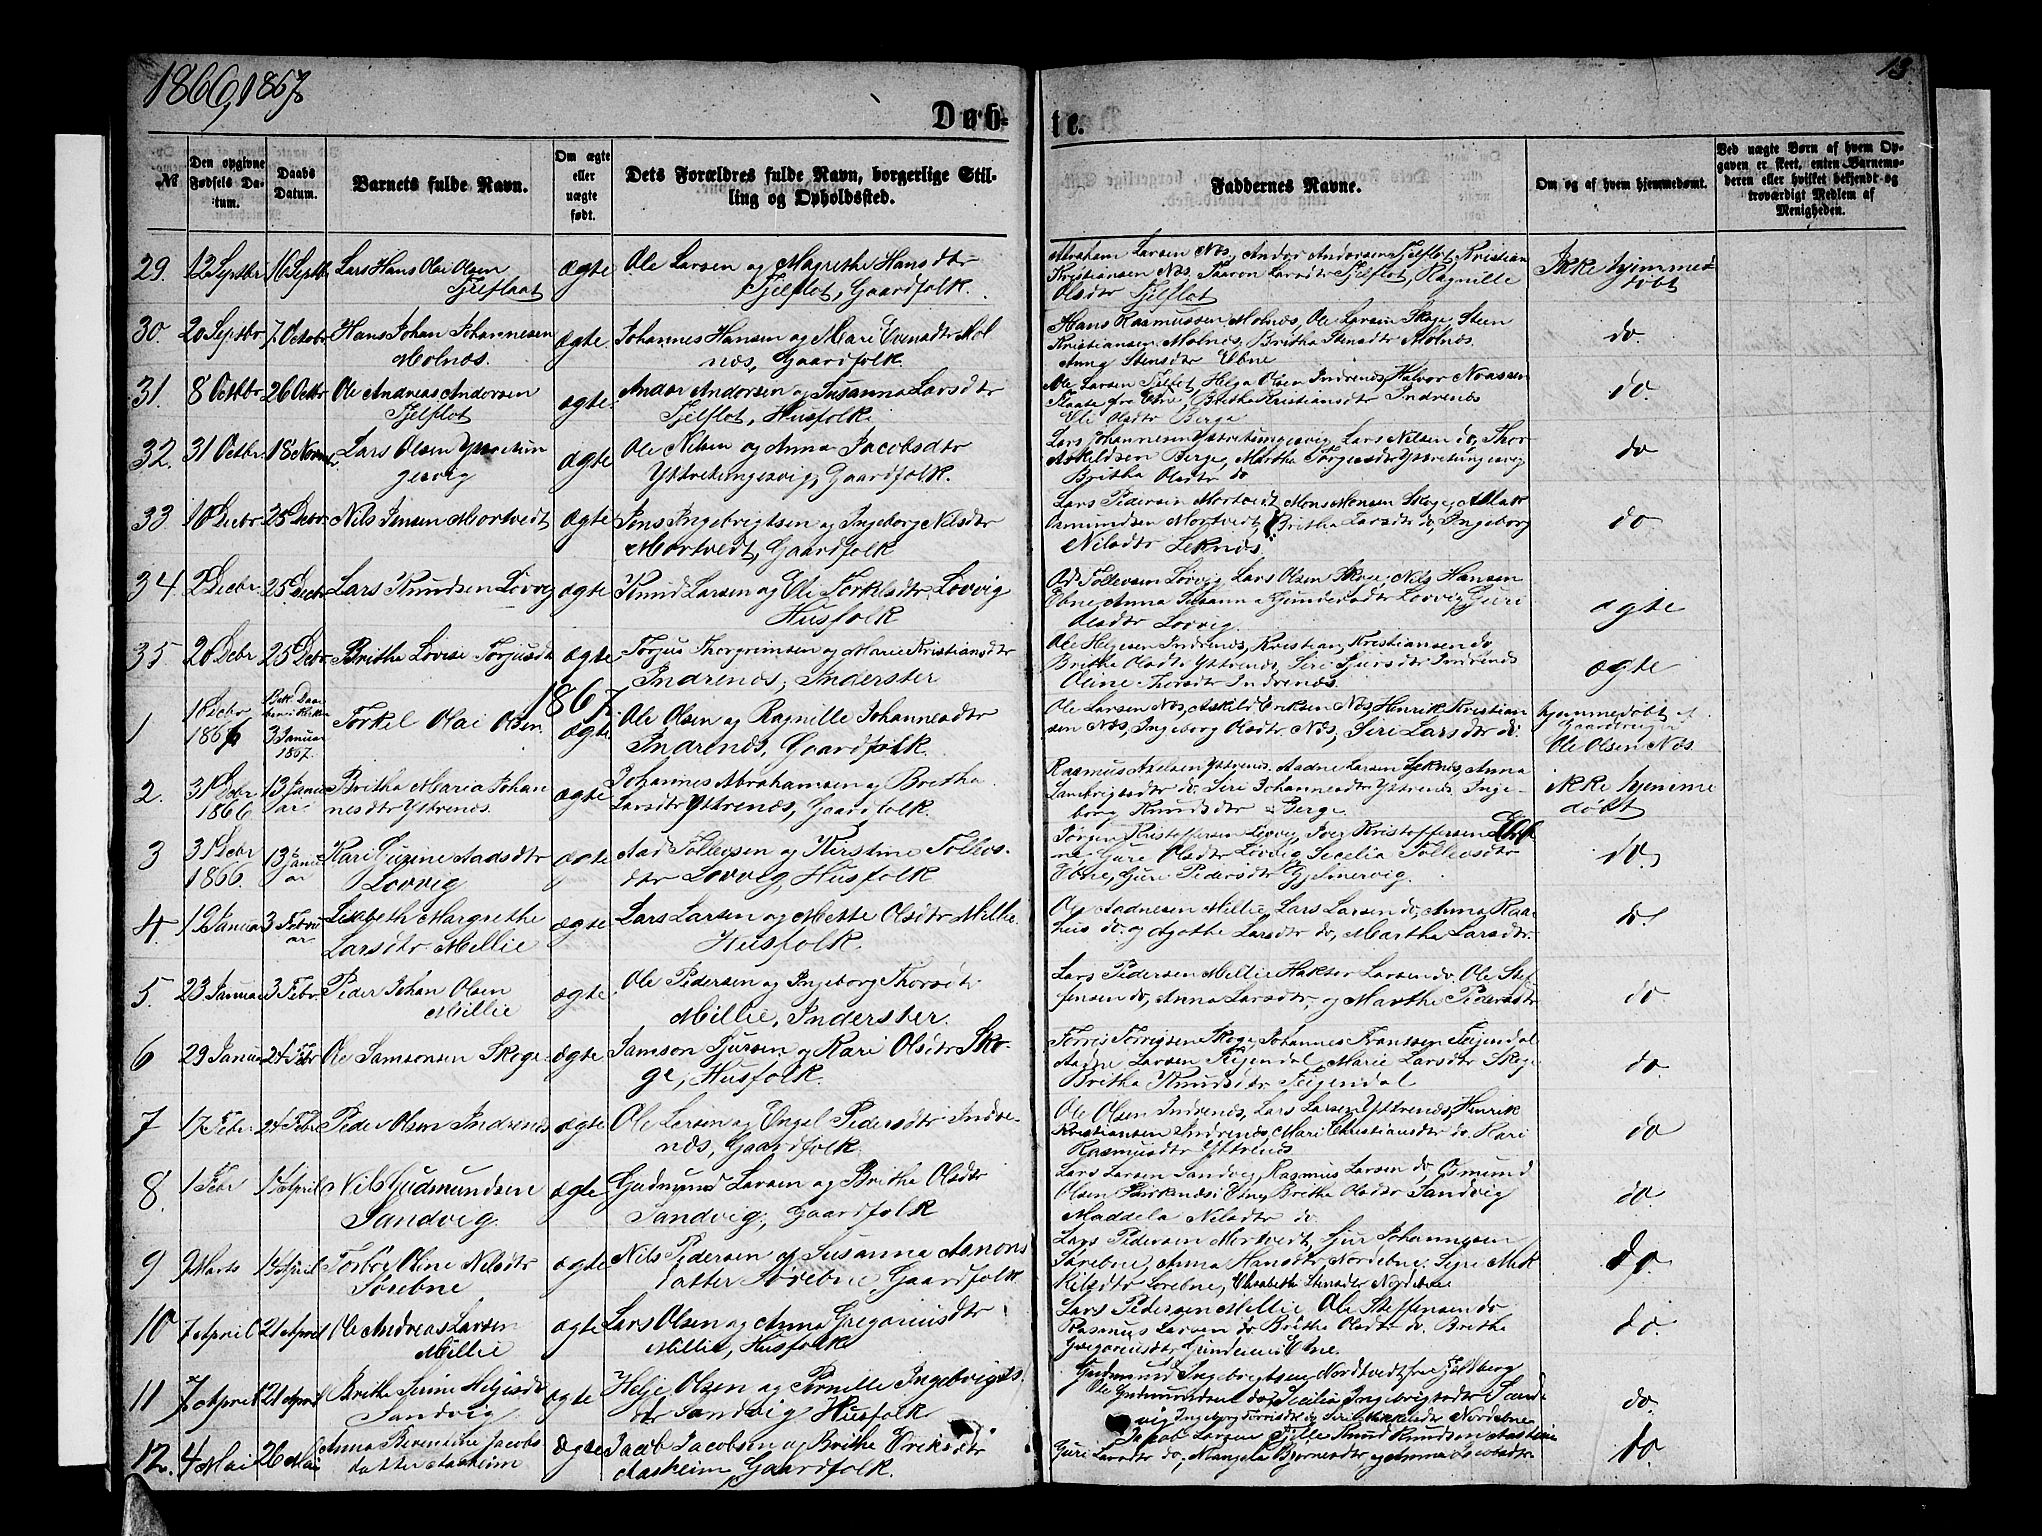 1866, 1867
13
Døb-
te.
№
Den opgivne Fødsels Datum.
Daabs Datum.
Barnets fulde Navn.
Om ægte eller uægte født.
Dets Forældres fulde Navn, borgerlige Stilling og Opholdssted.
Faddernes Navne.
Om og af hvem hjemmedøbt.
Ved uægte Børn af hvem Opgaven er skeet, enten Barnemoderen eller hvilket bekjendt og troværdigt Medlem af Menigheden.
29. 12 Septbr 16 Septbr Lars Hans Olai Olsen ægte Ole Larsen og Magrethe Hansdtr
Tjelflaat Tjelflot, Gaardfolk.
Abraham Larsen Nøs, Andor Andersen Tjelflot, Kristian
Kristiansen Nøs, Larsdtr Tjelflot, Ragnille
Olsdtr Tjelflot
Ikke hjemme
døbt
30. 20 Septbr 7 Octobr Hans Johan Johannesen ægte Johannes Hansen og Mari Evensdtr Mol
Molnæs. næs, Gaardfolk.
Hans Rasmussen Molnæs, Ole Larsen Skoge, Steen
Kristiansen Molnæs, Britha Stensdtr Molnæs
Anna Stensdtr Ebne
do.
31. 8 Octbr 26 Octbr Ole Andreas Andersen ægte Andor Andersen og Susanna Larsdtr
Tjelflot Tjelflot, Husfolk.
Ole Larsen Tjelflot, Helge Olsen Indrenæs, Halvor
fra Ebne, Britha Kristiansdtr Indrenæs
Eli Olsdtr Berge
do.
32. 31 Octbr 18 Novembr Lars Olsen Yttretun ægte Ole Nilsen og Anna Jacobsdtr
gesvig Yttretungesvig, Gaardfolk.
Lars Johannesen Yttretungesvig, Lars Nilsen do, Thor
Askildsen Berge, Martha Yttretungesvig
Britha Olsdtr do
do
33. 10 Decbr 25 Debr Nils Jensen Mortvedt ægte Jens Ingebrigtsen og Ingeborg Nilsdtr
Mortvedt, Gaardfolk
Lars Pedersen Mortvedt, Mons Monsen Skoge,
Osmundsen Mortvedt, Britha Larsdtr do, Ingeborg
Nilsdtr Leknes
do.
34 2 Decbr 25 Decbr Lars Knudsen Løvvig ægte Knud Larsen og Eli Torkelsdtr Løvvig
Husfolk
Tollevsen Løvvig, Lars Olsen Skoge, Nils Hansen
Ebne, Anna Susanna Gundersdtr Løvvig, Guri
Olsdtr Løvvig.
ægte
35 20 Debr 25 Debr Brithe Lovise Torjusdtr ægte Torjus Thorgrimsen og Marie Kristiansdtr
Indrenæs, Inderster
Ole Helgesen Indrenæs, Kristian Kristiansen do,
Britha Olsdtr Yttrenæs, Siri Sjursdtr Indrenæs
Oline Indrenæs.
ægte
1867.
1 1866 3 Januar 1867. Torkel Olai Olsen ægte Ole Olsen og Ragnille Johannesdtr
Indrenæs, Gaardfolk.
Ole Larsen Nøs, Askild Eriksen Nøs, Henrik Kristian
sen Nøs, Ingeborg Olsdtr Nøs, Siri Larsdtr do
hjemmedøbt af
Ole Olsen Nøs
2. 31 Debr 1866 13 Janu
ar Britha Maria Johan ægte Johannes Abrahamsen og Britha
nesdtr Yttrenæs. Larsdtr Yttrenæs, Gaardfolk.
Rasmus Yttrenæs, Aadne Larsen Leknes, Anna
do. Siri Johannesdtr Yttrenæs, Inge
borg Knudsdtr Berge.
Ikke hjemme
døbt
3 31 Debr 1866. 13 Janu
ar Kari Aadsdtr ægte Aad Tollevsen og Kirstine Tollevs
Løvvig dtr Løvvig, Husfolk
Jørgen Kristoffersen Løvvig, Iver Kristoffersen Eb
ne, Guri Olsdtr Løvvig, Secelia Tollevsdtr
Ebne, Guri Pedersdtr Gjelmervig.
do
4. 19 Januar 3 Febru
ar Lisbeth Margrethe ægte Lars Larsen og Mette Olsdtr Millie
Larsdtr Millie Husfolk.
Ole Aadnesen Millie, Lars Larsen do, Anna
do og Agathe Larsdtr do, Martha Larsdtr.
do
5. 23 Januar 3 Febr Peder Johan Olsen ægte Ole Pedersen og Ingeborg Thorsdtr
Millie Millie, Inderster.
Lars Pedersen Millie, Larsen do. Ole Stef
fensen do, Anna Larsdtr, og Marthe Pedersdtr
do.
6 29 Januar 24 Febr Ole Samsonsen Skoge ægte Samson Sjursen og Kari Olsdtr Sko-
ge, Husfolk.
Torris Torrissen Skoge, Johannes Frantsen Teigendal
Aadne Larsen Teigendal, Marie Larsdtr Skoge
Britha Knudsdtr Teigendal
do.
7 17 Febr. 24 Febr Peder Olsen Indrenæs ægte Ole Larsen og Engel Pedersdtr Indre-
næs, Gaardfolk.
Ole Olsen Indrenæs, Lars Larsen Yttrenæs, Henrik
Kristiansen Indrenæs, Mari Christiansdtr do. Kari
Rasmusdtr Yttrenæs
do
8. 1 Febr April Nils Gudmundsen ægte Gudmund Larsen og Brithe Olsdtr
Sandvig. Sandvig, Gaardfolk
Lars Larsen Sandvig, Rasmus Larsen do, Osmund
Olsen Etne, Brithe Olsdtr Sandvig
Maddela Nilsdtr do.
do.
9 9 Marts 14 April Oline Nilsdtr ægte Nils Pedersen og Susanna Asmons
Sørebne datter Sørebne, Gaardfolk
Lars Pedersen Mortvedt, Sjur Johannesen
Sørebne, Anna Hansdtr Nordebne, Mik
kilsdtr Sørebne, Elisabeth Stensdtr Nordebne
do.
10 7 April 21 April Ole Andreas Larsen ægte Lars Olsen og Anna Gregoriusdtr
Millie Millie, Husfolk
Lars Pedersen Millie, Ole Steffensen do
Rasmus Larsen do Brithe Olsdtr do. Brithe
Gregoriusdtr Ebne.
do.
11 7 April 21 April Brithe Serine Helgesdtr ægte Helje Olsen og Pernille Ingebrigts.
Sandvig dtr Sandvig Husfolk
Gudmund Ingebrigtsen Nordtvedt fra Fjeldberg
Ole Gudmundsen do, Secilia Ingebrigtsdtr Sand
vig, Ingeborg Torrisdtr do Siri Nordebne
do.
12. 4 Mai 26 Mai Anna Berentine Jacobs ægte Jacob Jacobsen og Brithe Eriksdtr
datter Aasheim Aasheim Gaardfolk.
Jacob Larsen Knud Knudsen Aasheim
Guri Larsdtr do, Mangela Bjørnesdtr og Anna Jacobsdtr
do.